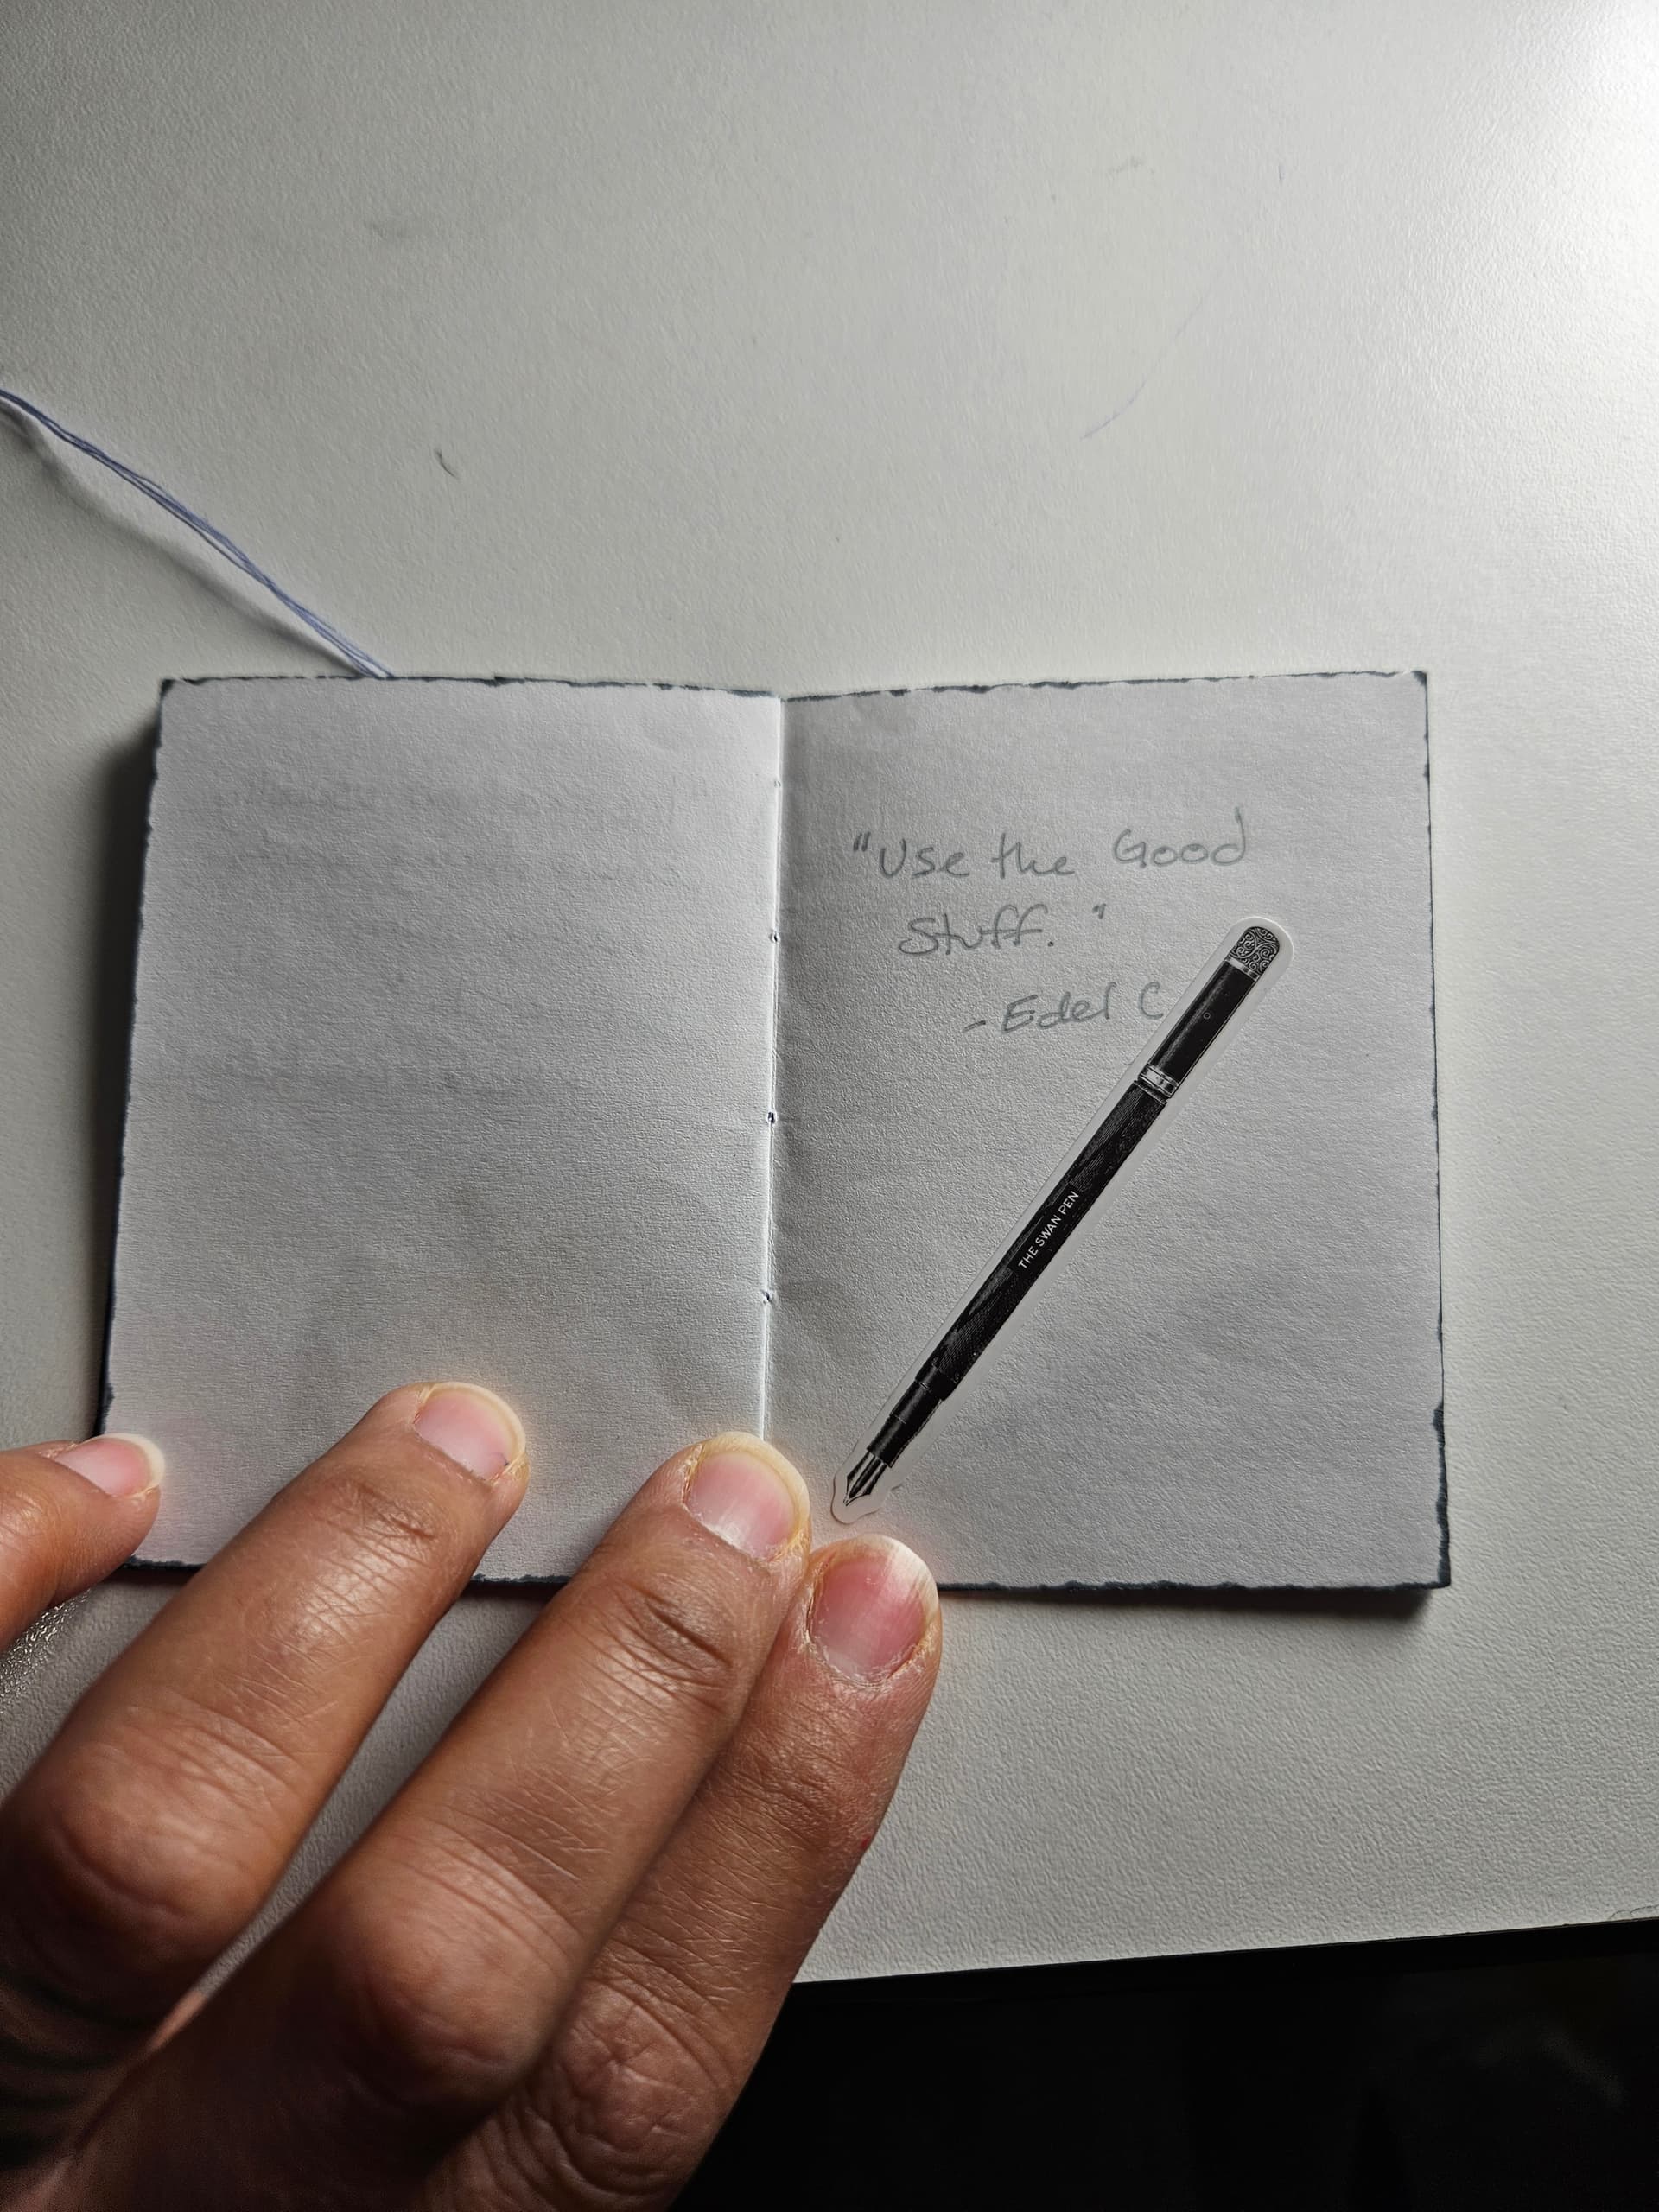 "Use the Good
Stuff."
- Edel C
THE SWAN PEN